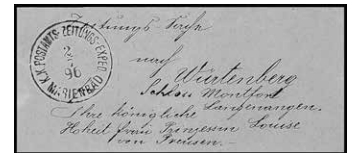 Zeitungs Sache
K.K. POSTAMTS-ZEITUNGS-EXPED.
2
96
MARIENBAD
nach
Würtenberg
Schloss Montfort
Langenangen.
Ihre königliche
Hoheit frau Prinzessin Louise
von Preusen.